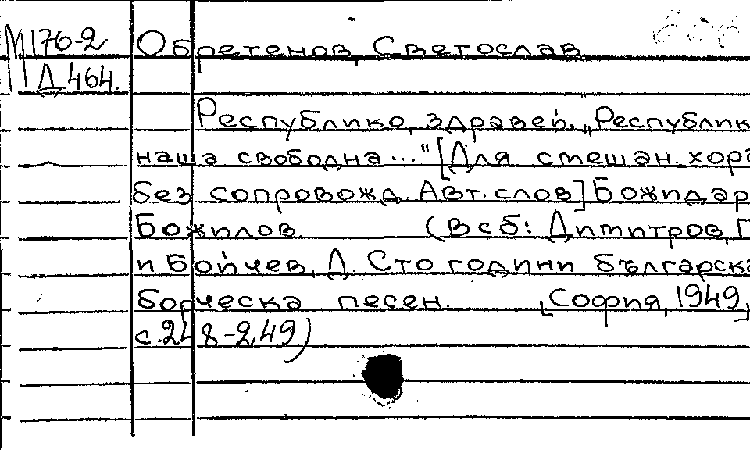 М176-2
Д 464.
Обретенов, Светослав
Республико, здравей. „Републик
наша свободна..." [Для смешан. хора
без сопровожд. Авт. слов] Божидар
Божилов. (В сб: Димитров, Г
и Бойчев, Д. Сто години българска
борческа песен. [София, 1949,]
с. 248-249)